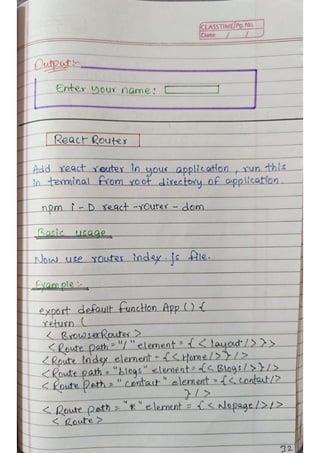 CLASSTIME/Pg. No.
Date / /
Output:-
Enter your name:
React Router
Add react router in your application, run this
in terminal from root directory of application.
npm i - D react - router - dom
Basic usage
Now use router index.js file.
Example:-
export default function App () {
return (
< BrowserRouter >
<Route path = "/" element = {< layout/>}>
<Route Index element = {<Home/>}/>
<Route path = "blogs" element = {< Blogs/>}/>
< Route path = "contact" element = {< contact/>
}/>
< Route path = "*" element = {< Nopage/>/>
< Route>
32